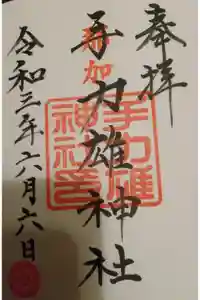 奉拝
那加
手力雄神社
手力雄
神社印
令和三年六月六日